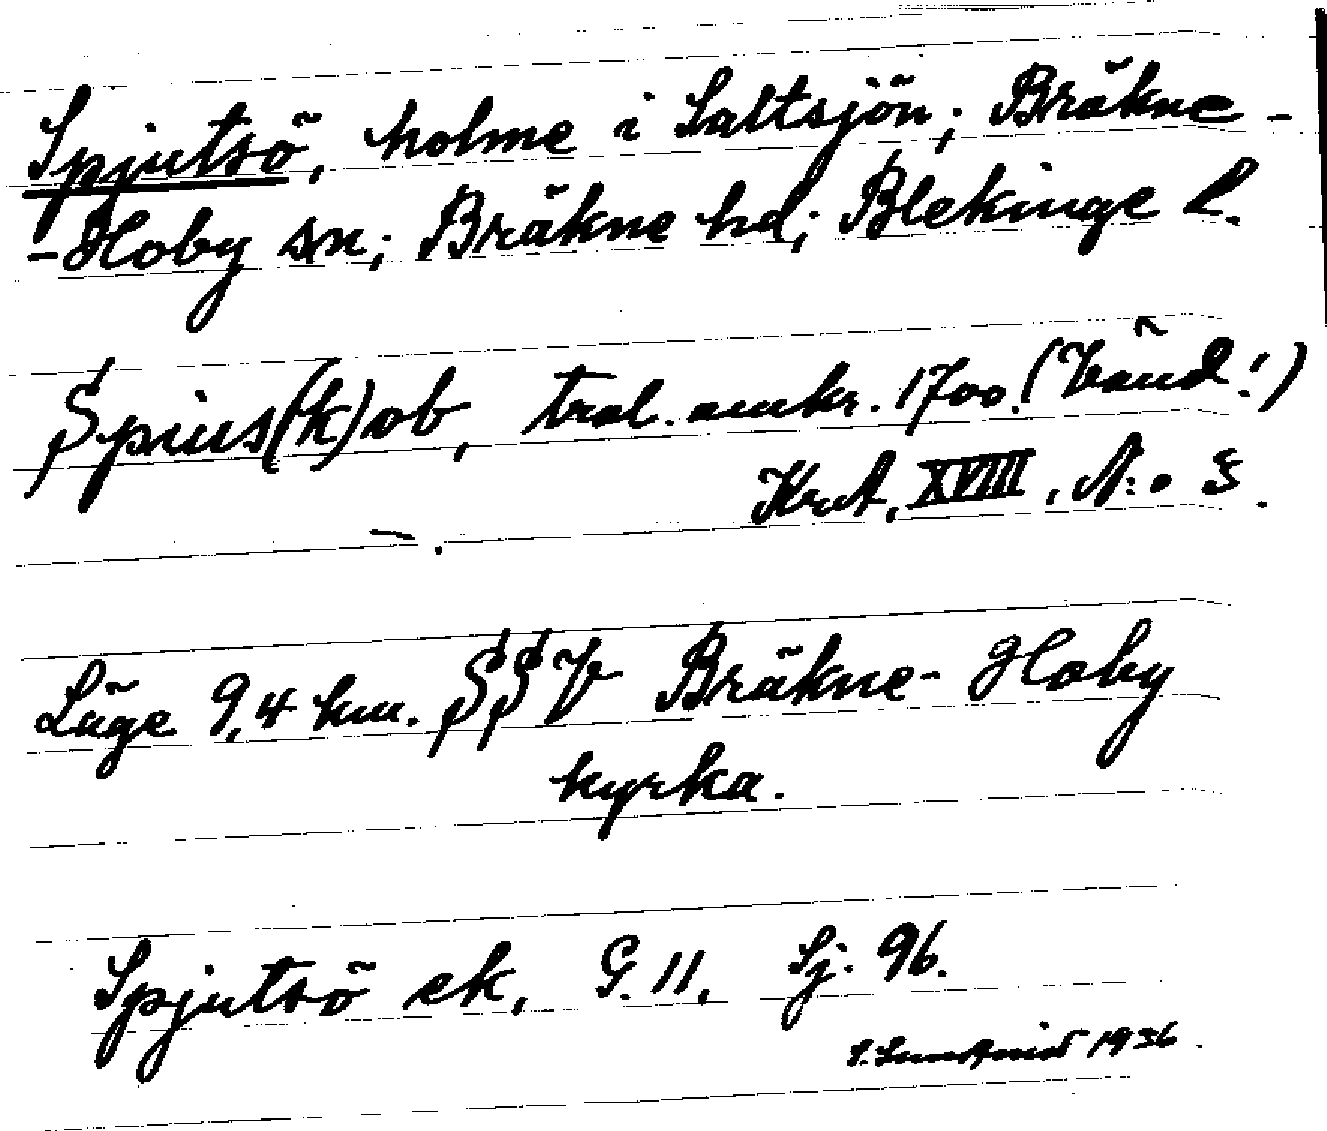 Spjutsö, holme i Saltsjön; Bräkne-
-Hoby sn; Bräkne hd; Blekinge l.
Spius(k)ob, tral. omkr. 1700. (Vänd!)
KrA, XVIII, N:o 3.
Läge 9,4 km. SSV Bräkne-Hoby
kyrka.
Spjutsö ek, G. 11, Sj. 96.
1936.